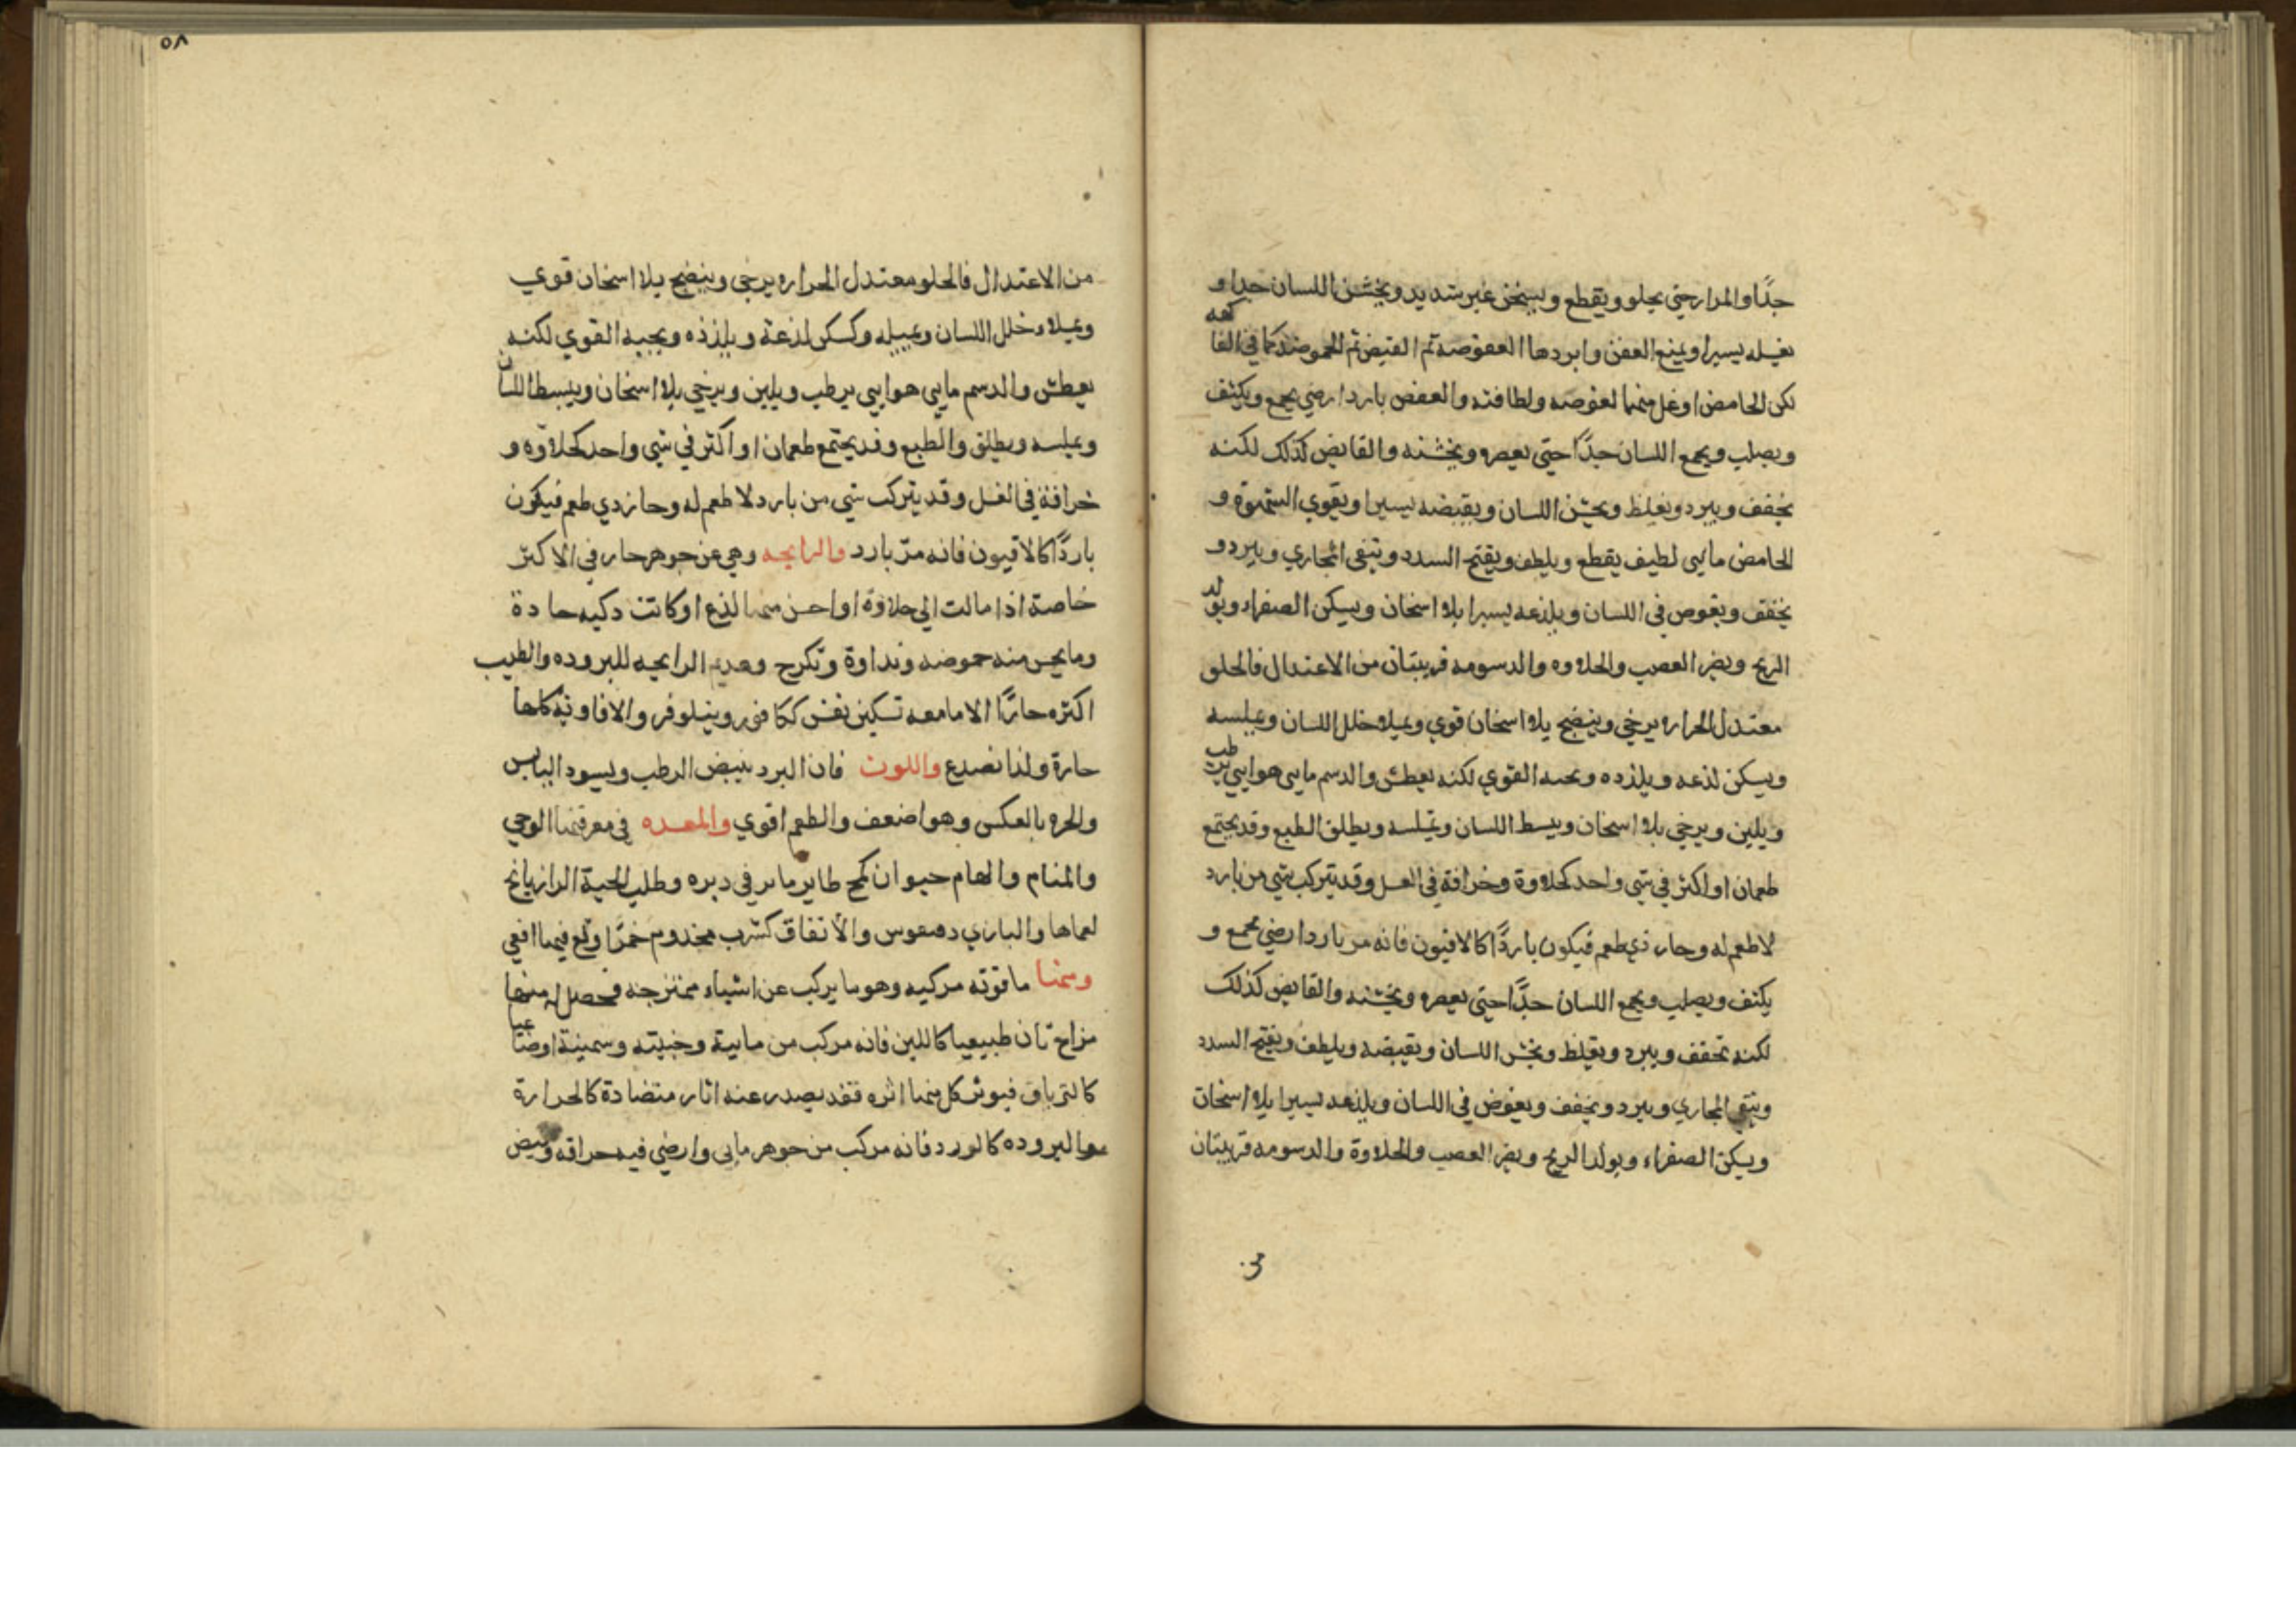 جدًا والمرارحتي يجلو ويقطع ويسخن غير شديد ويخشن اللسان جدا و
يسيرا ويمنع العفن وابردها العفوصه ثم القبض ثم الحموضه كما في الفا
كهه
لكن الحامض اوغل منهما لغوصه ولطافته والعفص بارد ارضي يجمع ويكثف
ويصلب ويجمع اللسان جدًا حتي يعصره ويخشنه والقابض كذلك لكنه
يخفف ويبرد ويغلظ ويخشن اللسان ويقبضه يسيرا ويقوي الشهوة و
الحامض مايي لطيف يقطع ويلطف ويفتح السدد وينقي المجاري ويبرد و
يخفف ويغوص في اللسان ويلذعه يسيرا بلا اسخان ويسكن الصفراء ويولد
الريح ويضر العصب والحلاوه والدسومه قريبتان من الاعتدال فالحلو
معتدل الحراره يرخي وينضج بلا اسخان قوي ويملا خلل اللسان ويملسه
ويسكن لذعه ويلذذه ويحبه القوي لكنه يعطش والدسم مايي هوايي يرطب
ويلين ويرخي بلا اسخان ويبسط اللسان ويملسه ويطلق الطبع وقد يجتمع
طعمان او اكثر في شي واحد كحلاوة وحرافة في العسل وقد يتركب شي من بارد
لا طعم له وحار ذي طعم فيكون باردًا كالافيون فانه مر بارد ارضي يجمع و
يكثف ويصلب ويجمع اللسان جدًا حتي يعصره ويخشنه والقابض كذلك
لكنه يخفف ويبرد ويغلظ ويخشن اللسان ويقبضه ويلطف ويفتح السدد
وينقي المجاري ويبرد ويخفف ويغوض في اللسان ويلذعه يسيرا بلا اسخان
ويسكن الصفراء ويولد الريح ويضر العصب والحلاوة والدسومه قريبتان
من
٥٨
من الاعتدال فالحلو معتدل الحراره يرخي وينضج بلا اسخان قوي
ويملاء خلل اللسان ويميله وكسكن لذعة ويلذذه ويجبه القوي لكنه
يعطش والدسم مايي هوايي يرطب ويلين ويرخي بلا اسخان ويبسط اللسان
ويملسه ويطلق والطبع وقد يجتمع طعمان او اكثر في شي واحد كحلاوه و
خرافة في العسل وقد يتركب شي من بارد لا طعم له وحار ذي طعم فيكون
باردًا كالافيون فانه مرّ بارد والرايحه وهي عن جوهر حار في الاكثر
خاصة اذا مالت الي حلاوة او احس منها لذع او كانت دكيه حادة
وما يحس منه حموضه ونداوة وتكرج وعديم الرايحه للبروده والطيب
اكثره حارًا الا ما معه تسكين نفس ككافور ونيلوفر والافاويه كلها
حارة ولذا تصدع واللون فان البرد يبيض الرطب ويسود اليابس
والحره بالعكس وهو اضعف والطعم اقوي والمعده في معرفتها الوحي
والمنام والهام حيوان كمج طاير ماير في دبره وطلب الحية الرازيانج
لعماها والبازي والأتفاق كشرب مجذوم خمرًا وقع فيها افعي
ومنها ما قوته مركبه وهو ما يركب عن اشياء ممتزجه فحصل له منها
مزاج ثان طبيعيا كاللبن فانه مركب من مايية وجبنيته وسمنية او صناعيا
كالترياق فيوثر كل منها اثره فقد يصدر عنه اثار متضادة كالحرارة
والبروده كالورد فانه مركب من جوهر مايي وارضي فيه حرافه وقبض